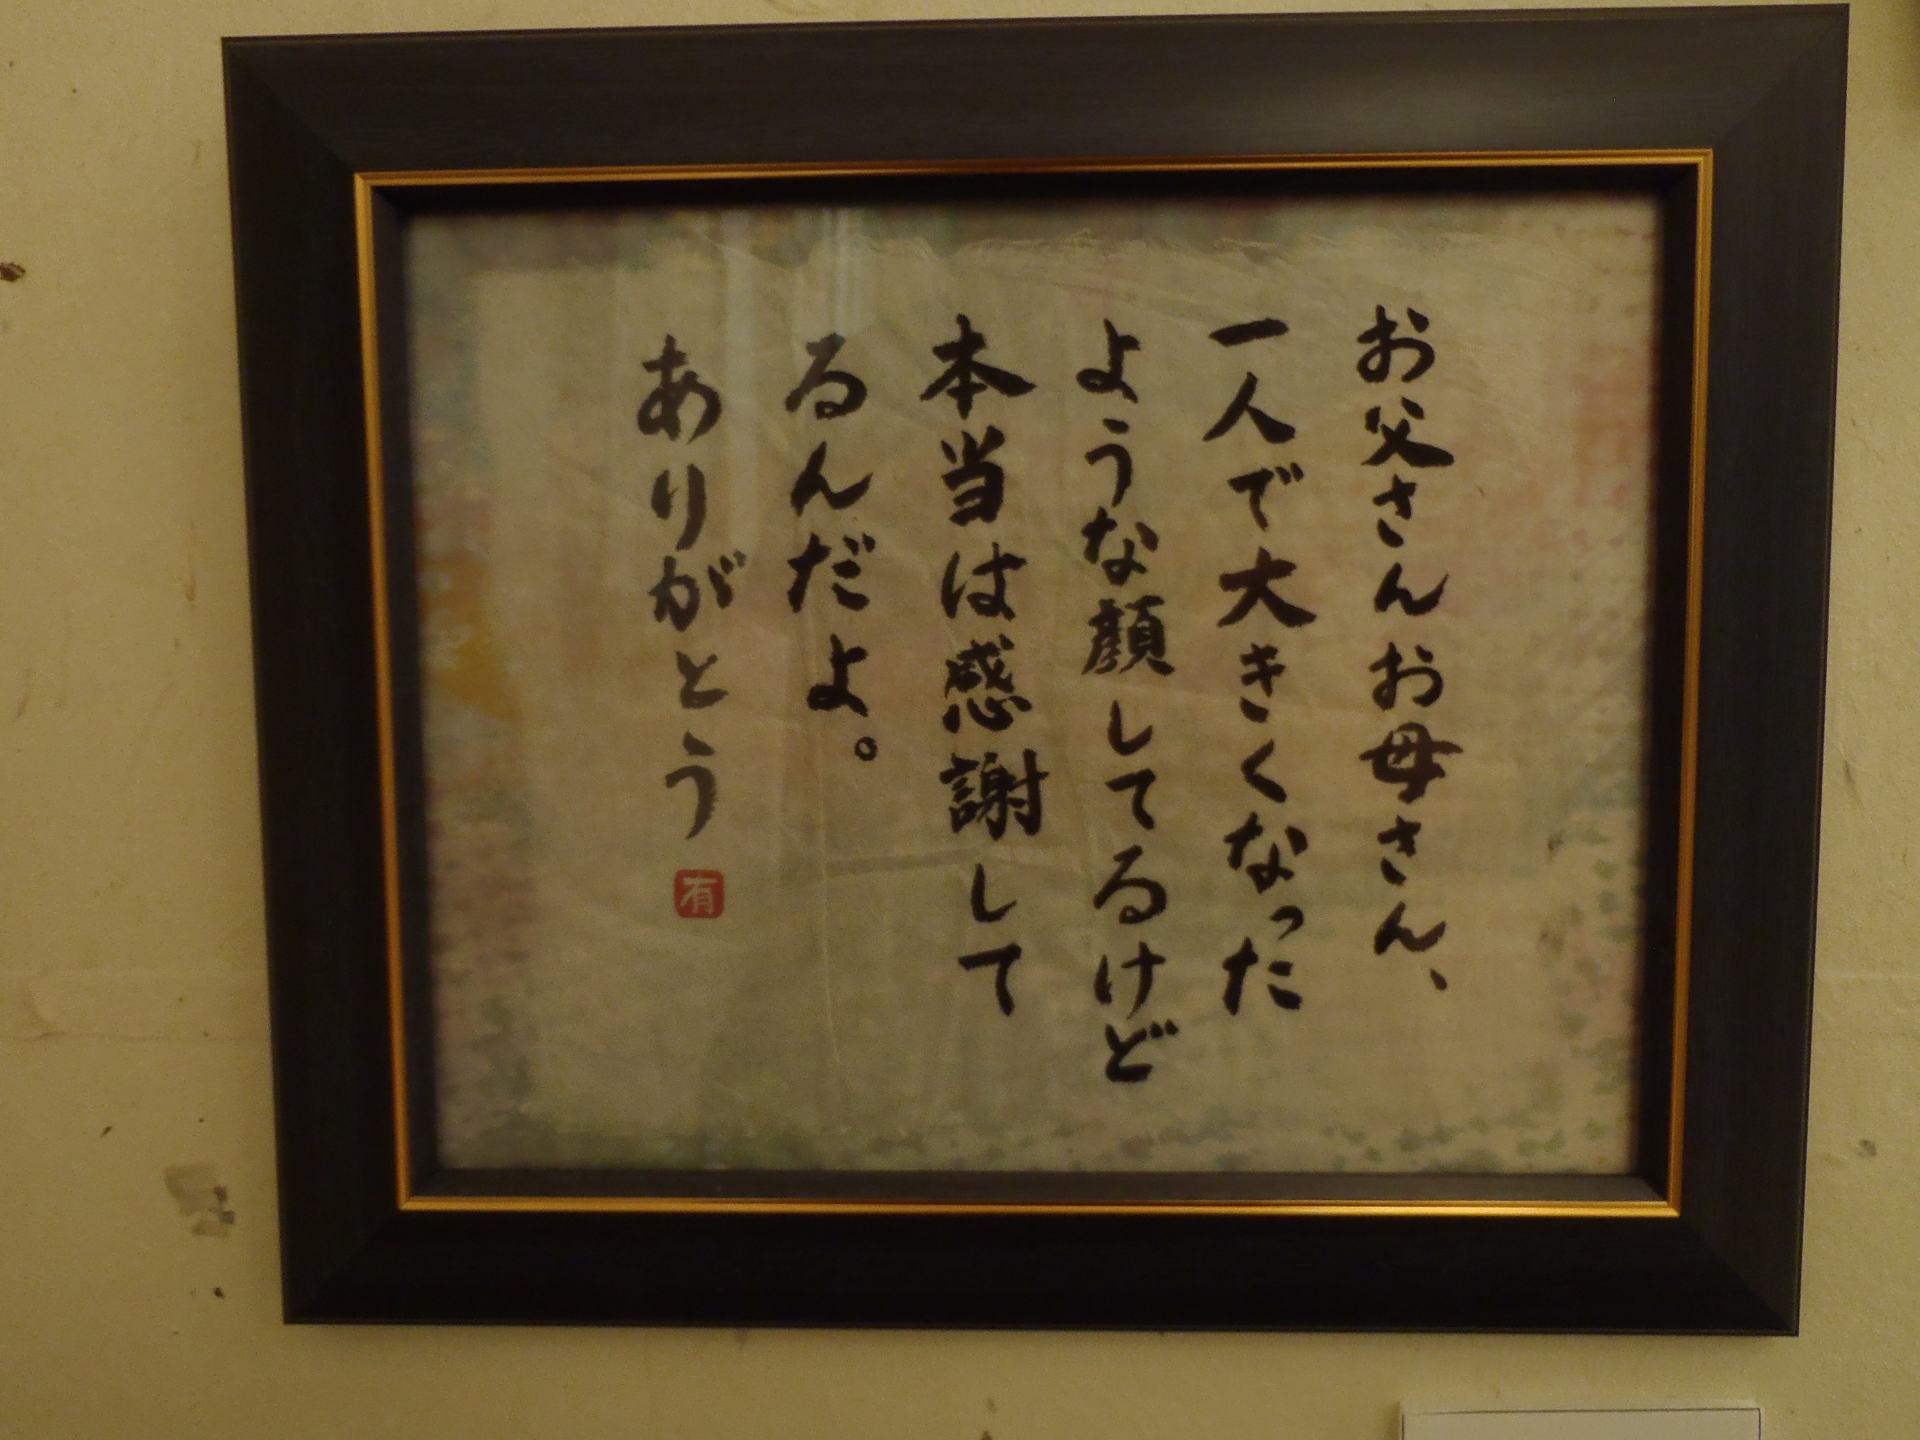 お父さんお母さん、
一人で大きくなった
ような顔してるけど
本当は感謝して
るんだよ。
ありがとう
有